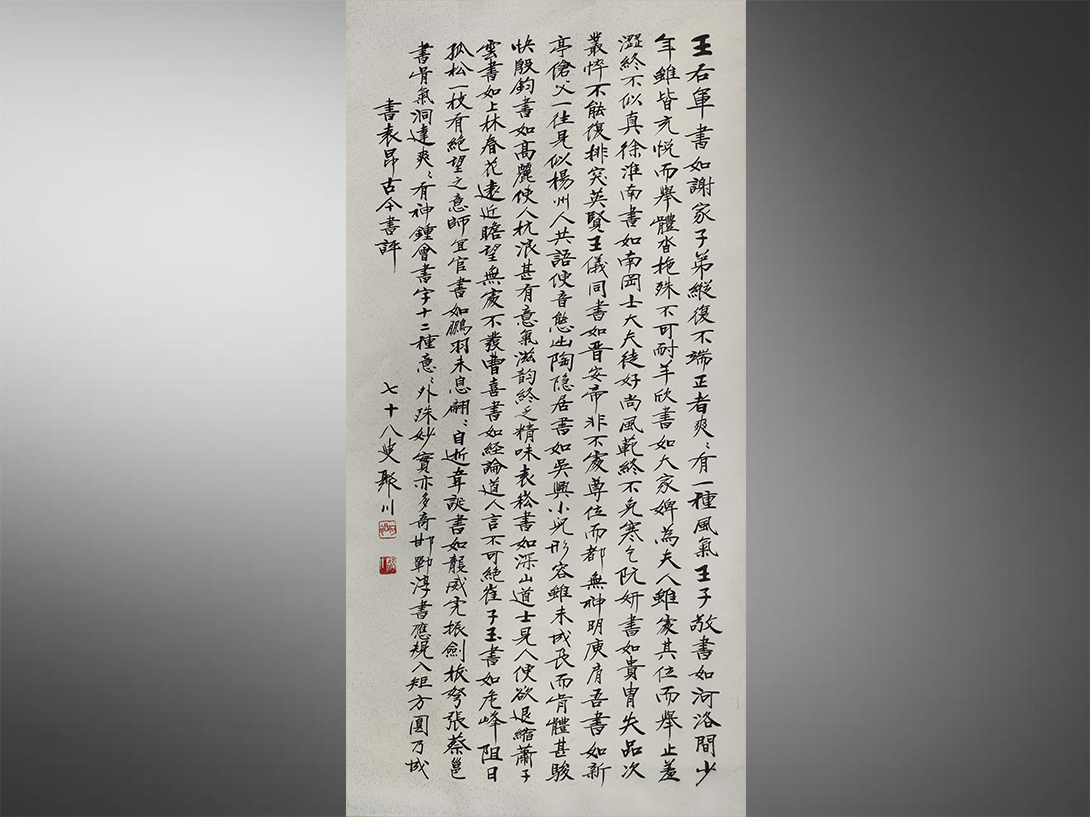 王右軍書如謝家子弟縱復不端正者爽〻有一種風氣王子敬書如河洛間少
年雖皆充悅而舉體沓拖殊不可耐羊欣書如大家婢為夫人雖處其位而舉止羞
澀終不似真徐淮南書如南岡士大夫徒好尚風範終不免寒乞阮妍書如貴胄失品次
叢悴不能復排突英賢王儀同書如晋安帝非不處尊位而都無神明庾肩吾書如新
亭傖父一往見似楊州人共語便音態出陶隐居書如吳興小兒形容雖未成長而骨體甚駿
快殷鈞書如高麗使人抗浪甚有意氣滋韵終乏精味袁崧書如深山道士見人便欲退縮蕭子
雲書如上林春花遠近瞻望無處不發曹喜書如經論道人言不可絕崔子玉書如危峰阻日
孤松一枝有絕望之意師宜官書如鵬羽未息翩〻自逝韋誕書如龍威虎振劍拔弩張蔡邕
書骨氣洞達爽〻有神鍾會書字十二種意〻外殊妙實亦多奇邯鄲淳書應規入矩方圓乃成
書袁昂古今書評
七十八叟聚川